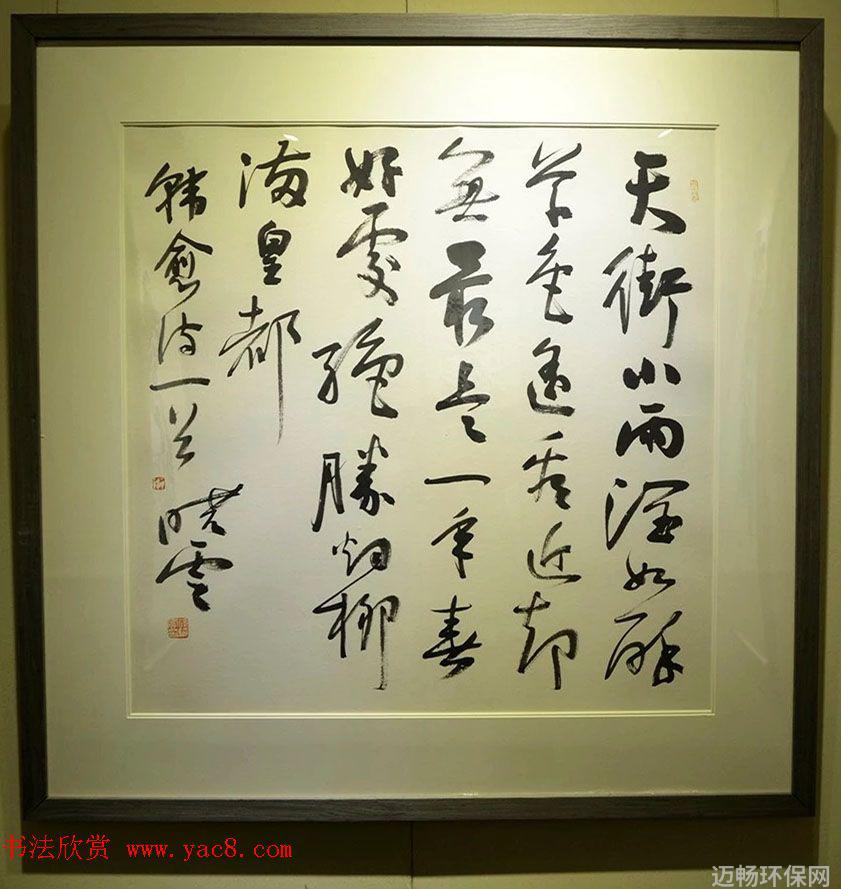 天街小雨潤如酥
草色遙看近却
無最是一年春
好處絕勝烟柳
滿皇都
韓愈詩一首
曉雲
书法欣赏 www.yac8.com
迈畅环保网